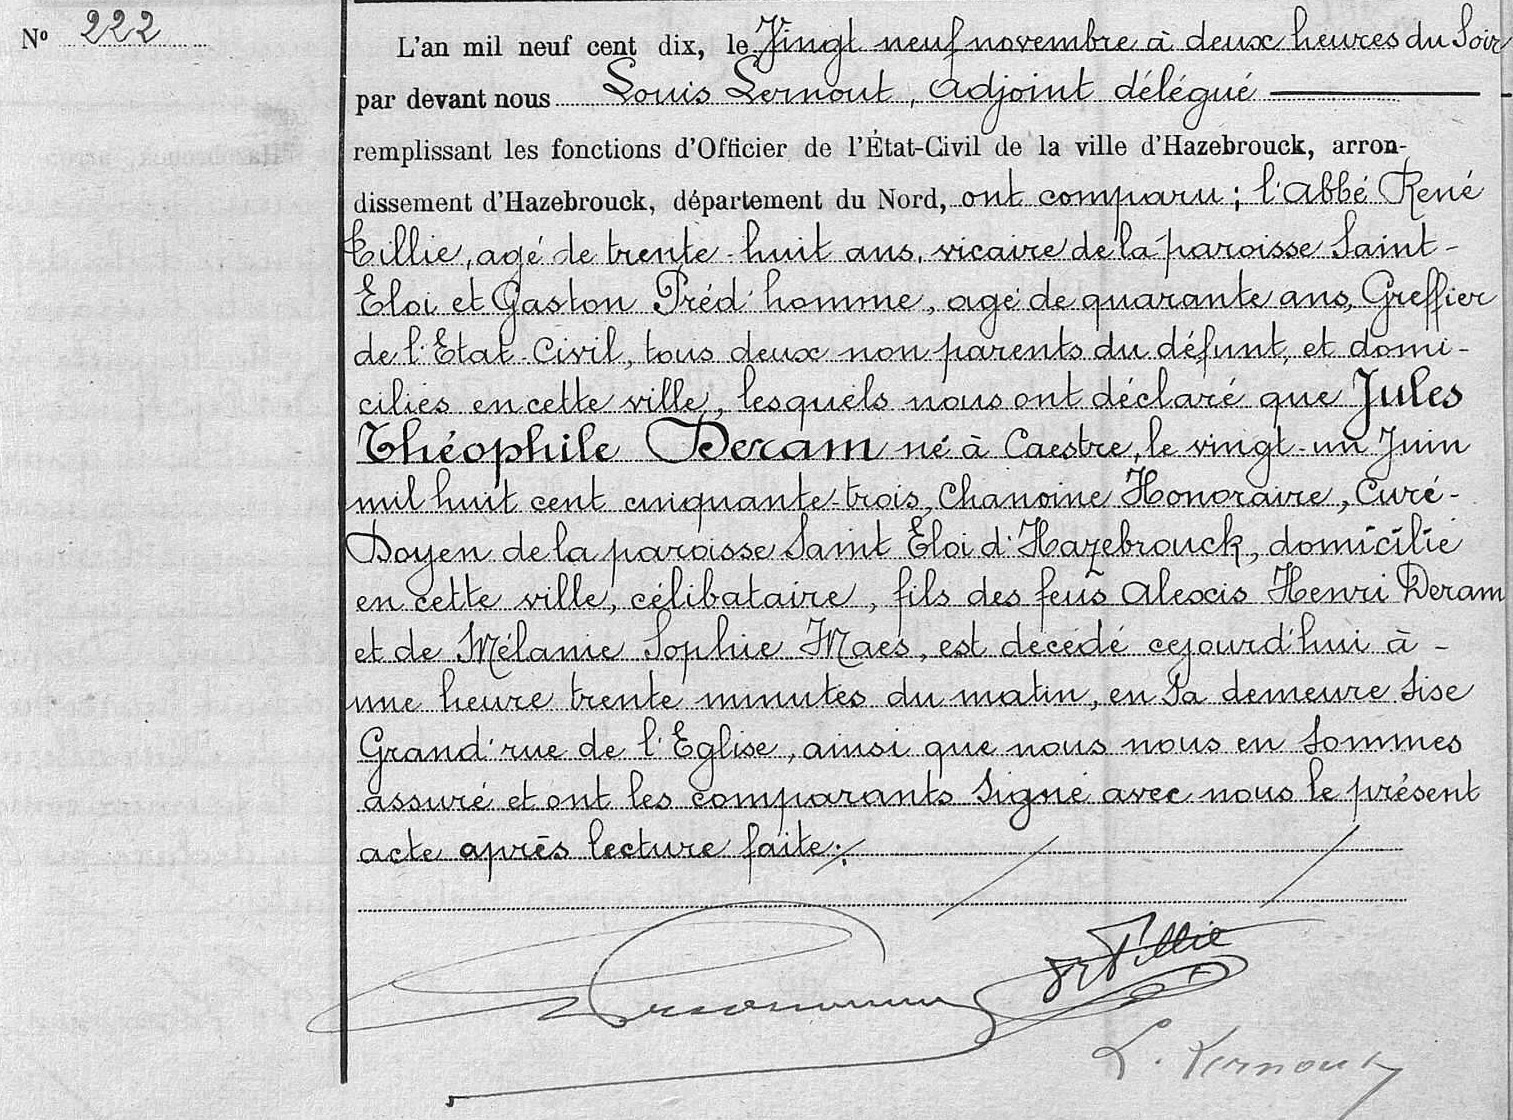 N° 222
L'an mil neuf cent dix, le Vingt neuf novembre à deux heures du Soir
par devant nous Louis Lernout, adjoint délégué
remplissant les fonctions d'Officier de l'État-Civil de la ville d'Hazebrouck, arron-
dissement d'Hazebrouck, département du Nord, ont comparu ; l'abbé René
Tillie, agé de trente-huit ans, vicaire de la paroisse Saint-
Eloi et Gaston Préd'homme, agé de quarante ans, Greffier
de l'Etat-Civil, tous deux non parents du défunt, et domi-
ciliés en cette ville, lesquels nous ont déclaré que Jules
Théophile Deram né à Caestre, le vingt-un Juin
mil huit cent cinquante-trois, Chanoine Honoraire, Curé-
Doyen de la paroisse Saint Eloi d'Hazebrouck, domicilié
en cette ville, célibataire, fils des feus Alexis Henri Deram
et de Mélanie Sophie Maes, est décédé cejourd'hui à -
une heure trente minutes du matin, en sa demeure sise
Grand'rue de l'Eglise, ainsi que nous nous en sommes
assuré et ont les comparants signé avec nous le présent
acte après lecture faite :
Tillie
L. Lernout